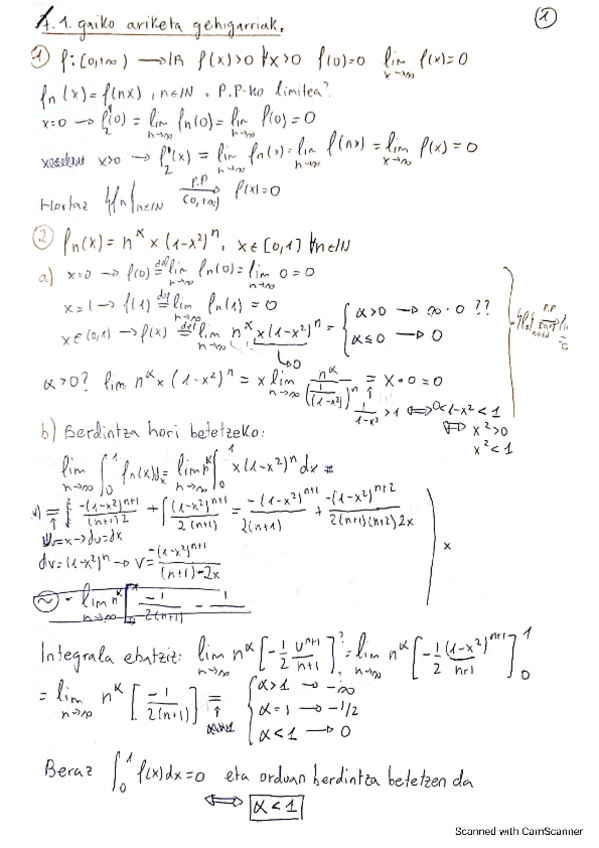 1. gaiko ariketa gehigarriak.
①
① f: (0,+∞) → ℝ f(x)>0 ∀x>0 f(0)=0 lim x→∞ f(x)=0
fn(x)=f(nx), n∈ℕ. P.P-ko limitea?
x=0 → f(0) = lim n→∞ fn(0) = lim n→∞ f(0) = 0
x>0 → f(x) = lim n→∞ fn(x) = lim n→∞ f(nx) = lim x→∞ f(x) = 0
Hortaz {fn}n∈ℕ P.P → f(x)=0
② fn(x) = n^α x (1-x²)^n, x∈[0,1] ∀n∈ℕ
a) x=0 → f(0) def= lim n→∞ fn(0) = lim n→∞ 0 = 0
x=1 → f(1) def= lim n→∞ fn(1) = 0
x∈(0,1) → f(x) def= lim n→∞ n^α x(1-x²)^n = { α>0 → ∞·0 ??
α≤0 → 0
→0
α>0? lim n→∞ n^α x (1-x²)^n = x lim n→∞ n^α / (1/(1-x²))^n = x·0 = 0
1/(1-x²) >1 ⟺ 0<1-x²<1
⟺ x²>0
x²<1
b) Berdintza hori betetzeko:
lim n→∞ ∫₀¹ fn(x)dx = lim n→∞ n^α ∫₀¹ x(1-x²)^n dx =
-(1-x²)^{n+1} / (n+1)2 + ∫ (1-x²)^{n+1} / 2(n+1) = -(1-x²)^{n+1} / 2(n+1) + -(1-x²)^{n+2} / 2(n+1)(n+2)2x
u=x → du=dx
dv=(1-x²)^n → v= -(1-x²)^{n+1} / (n+1)-2x
x
Integrala ebatziz: lim n→∞ n^α [-1/2 u^{n+1}/n+1]? = lim n→∞ n^α [-1/2 (1-x²)^{n+1}/n+1]₀¹
= lim n→∞ n^α [-1/2(n+1)] = { α>1 → -∞
α=1 → -1/2
α<1 → 0
Beraz ∫₀¹ f(x)dx=0 eta orduan berdintza betetzen da
⟺ α<1
Scanned with CamScanner